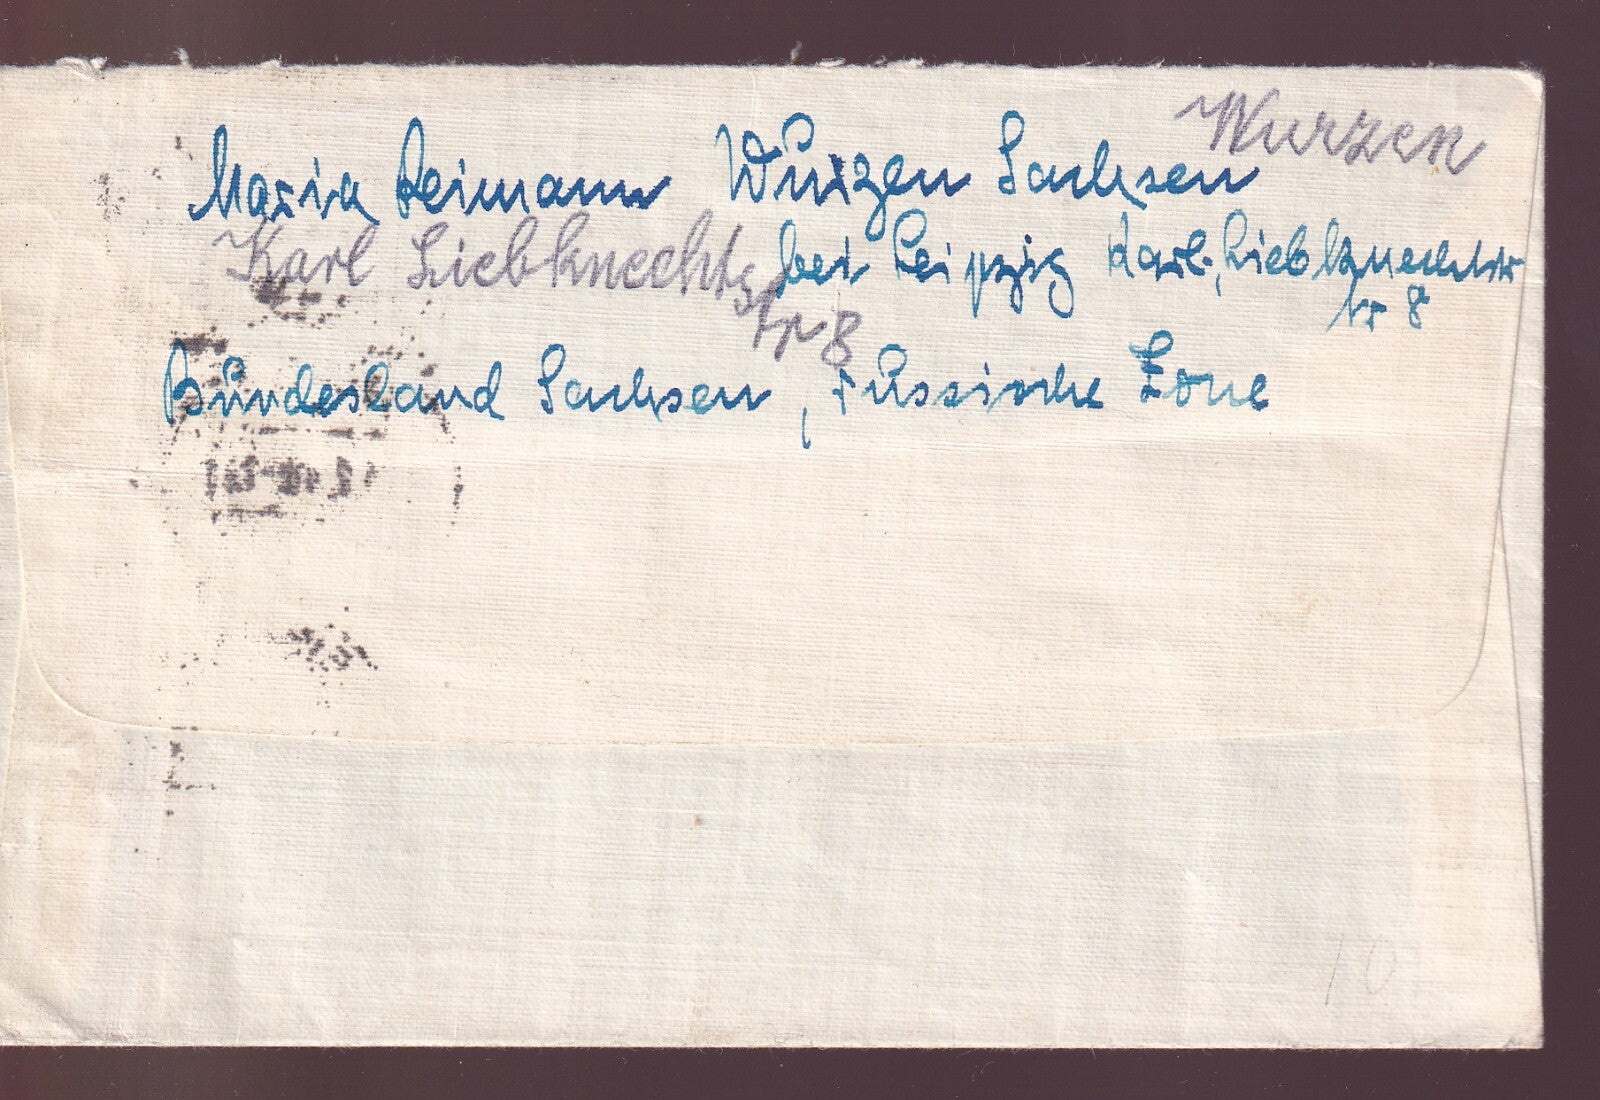 Wurzen
Maria Leimann Wurzen Sachsen
Karl Liebknechtstr 8
bei Leipzig Karl-Liebknechtstr
Nr 8
Bundesland Sachsen, russische Zone
10